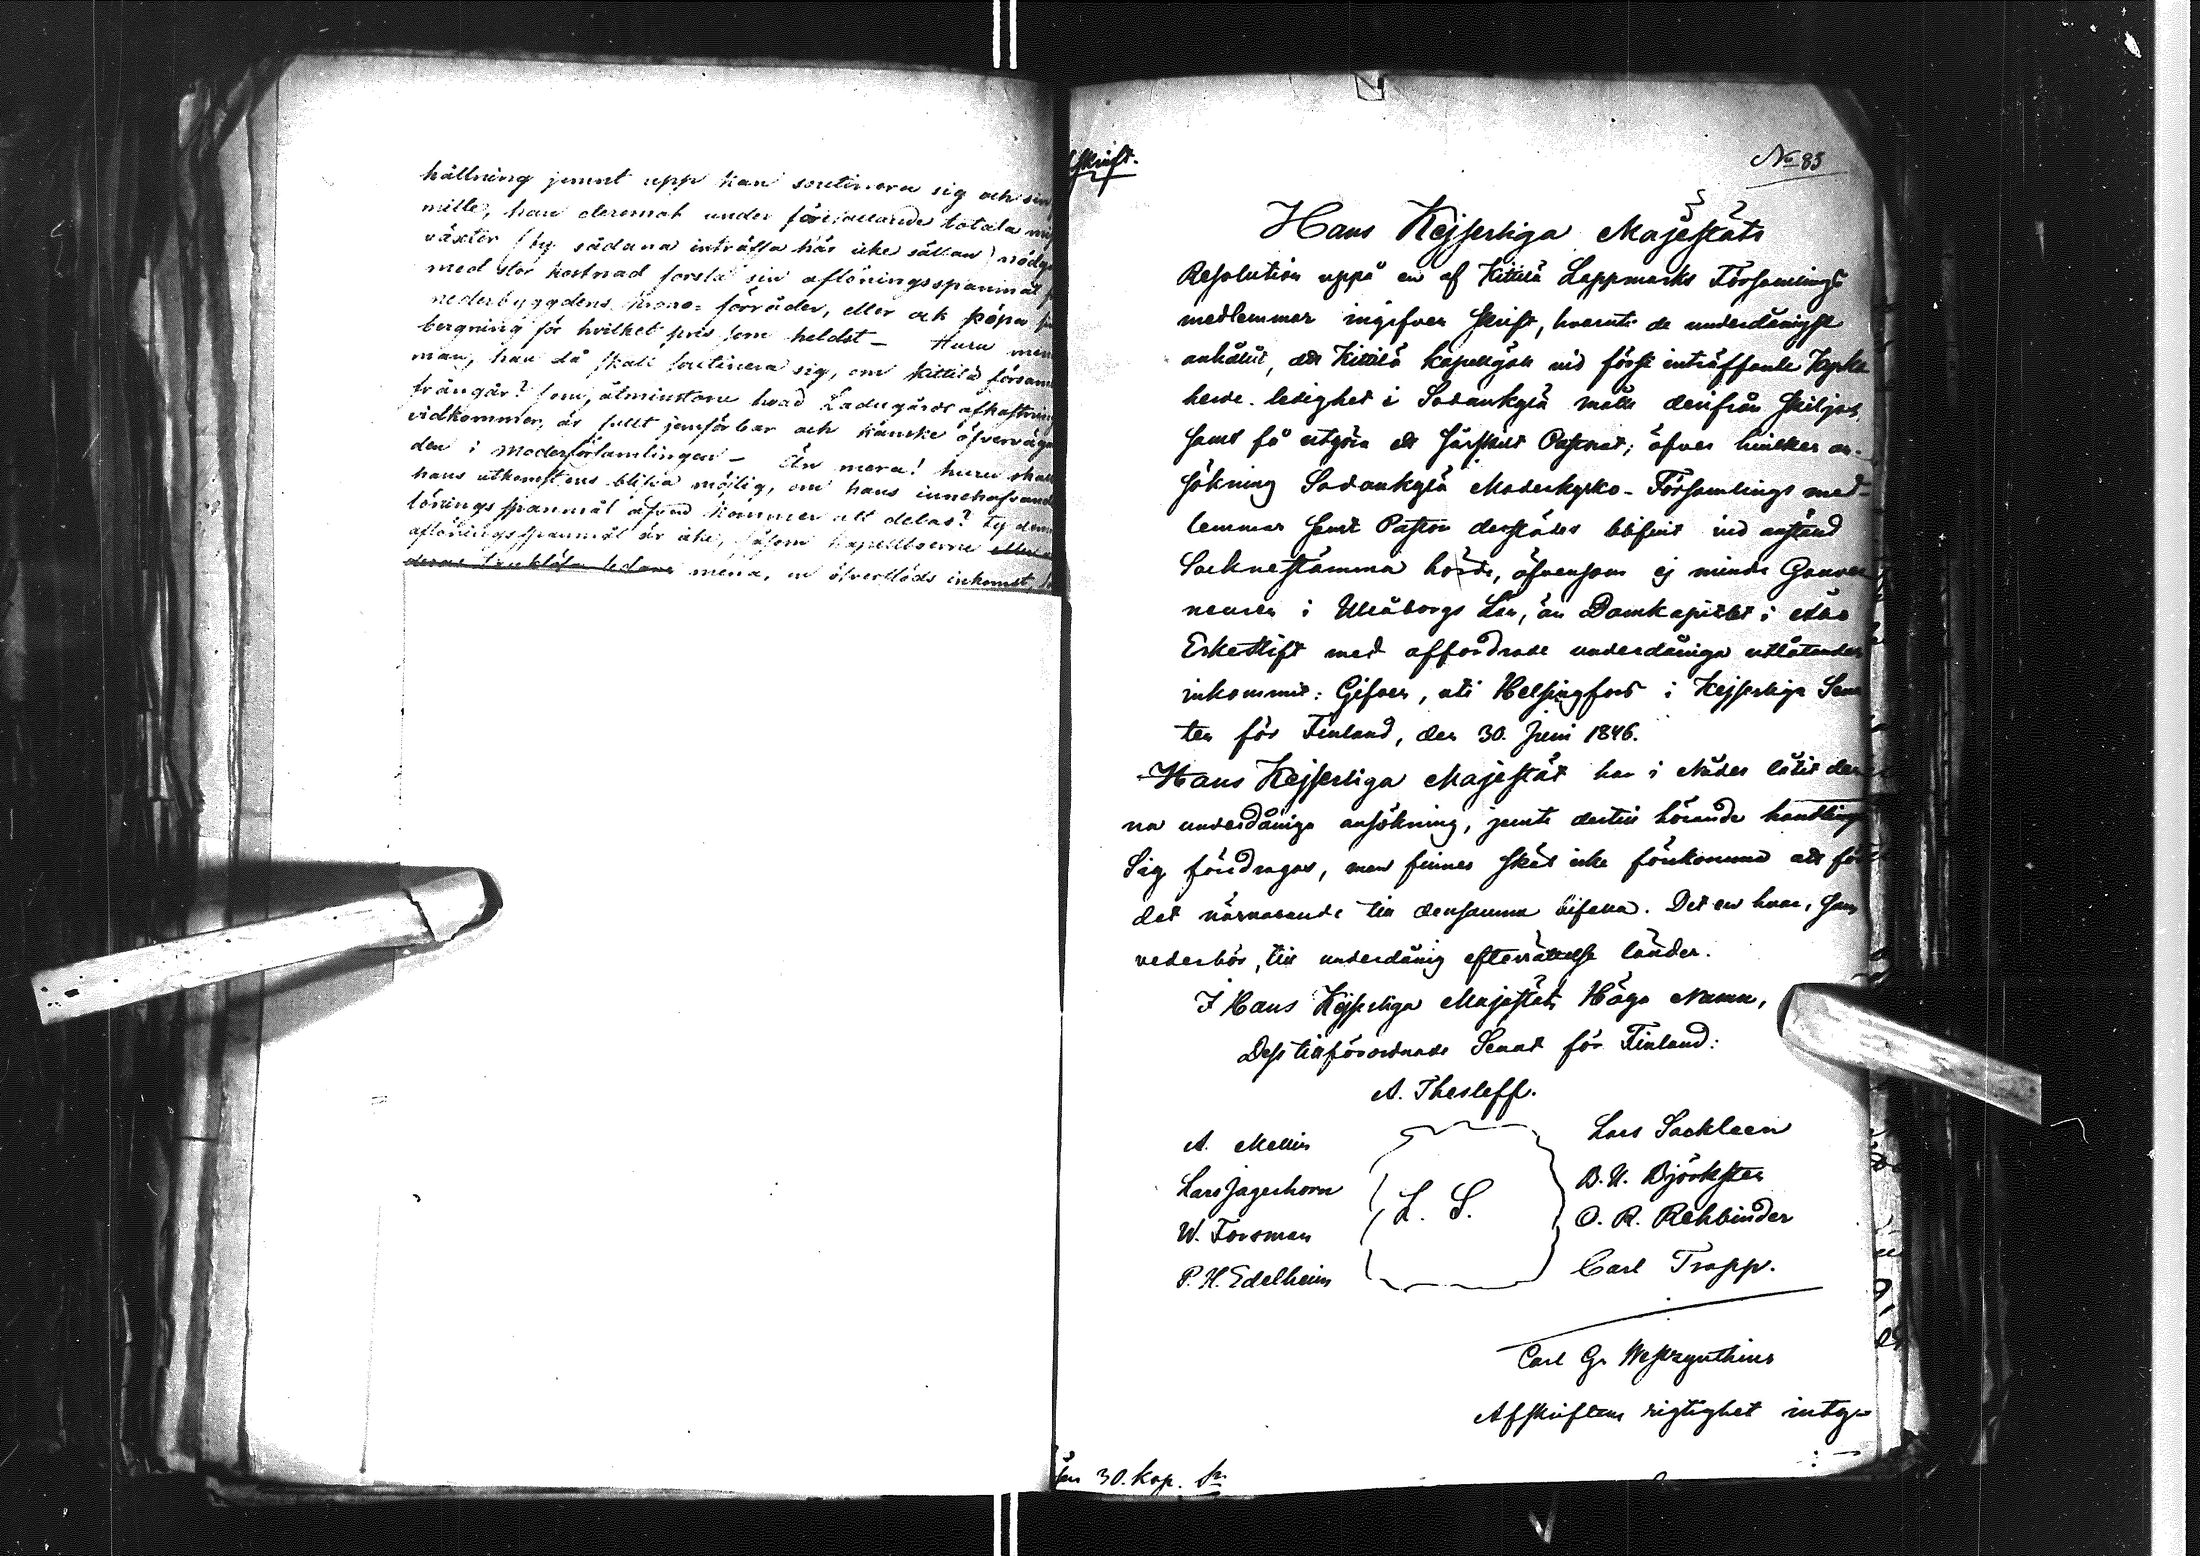 hållning jemnt upp kan soutinera sig och sin
mille, han deremot under förefallande totala
växter (ty sådana inträffa här icke sällan) nödg
med stor kostnad forsla sin aflöningsspanmål
nederbyggdens krono-förråder, eller ock köpa
bergning för hvilket pris som heldst – Huru
man, han då skall soutinera sig, om Kittilä försam
frångår? som, åtminstone hvad Ladugårds afkastnin
vidkommer, är fullt jemförbar och kanske öfverväga
den i Moderförsamlingen – Än mera! huru skall
hans utkomst ens blifva möjlig, om hans innehafvand
lönings spanmål äfven kommer att delas? ty denna
aflöningsspanmål är icke, såsom kapellboerne
mena, en öfverflöds inkomst,
fskrift.
No 83
Hans Kejserliga Majestäts
Resolution uppå en af Kittilä Lappmarks Församlings
medlemmar ingifven skrift, hvaruti de underdånigst
anhållit, att Kittilä kapellgäll vid först inträffande Kyrko
herde-ledighet i Sodankylä måtte derifrån skiljas,
samt få utgöra ett särskilt Pastorat; öfver hvilken an-
sökning Sodankylä Moderkyrko-Församlings med-
lemmar samt Pastor derstädes blifvit vid anstäld
Socknestämma hörde, äfvensom ej mindre Gouver
neuren i Uleåborgs Län, än Domkapitlet i Åbo
Erkestift med affordrade underdåniga utlåtanden
inkommit: Gifven, uti Helsingfors i Kejserliga Sena
ten för Finland, den 30. Juni 1846.
Hans Kejserliga Majestät har i Nåder låtit den
na underdåniga ansökning, jemte dertill hörande handling
Sig föredragas, men finner skäl icke förekomma att för
det närvarande till densamma bifalla. Det en hvar, som
vederbör, till underdånig efterrättelse länder.
I Hans Kejserliga Majestäts Höga Namn,
Dess tillförordnade Senat för Finland:
A. Thesleff.
A. Mellin
Lars Sackleen
Lars Jägerhorn
L. S.
B. U. Björksten
W. Forsman
O. R. Rehbinder
P. H. Edelheim
Carl Trapp.
Carl G. Westzynthius
Afskriftens rigtighet intyg-
30. kop. Sr